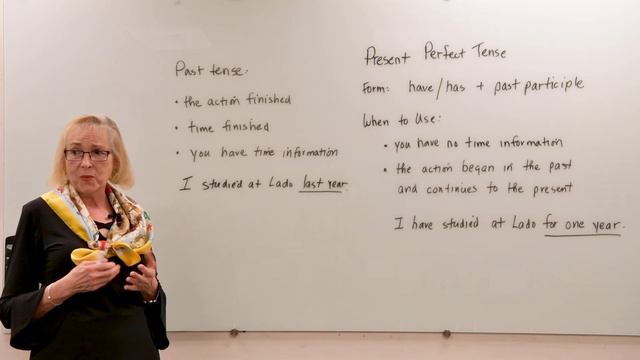 Past tense:
• the action finished
• time finished
• you have time information
I studied at Lado last year
Present Perfect Tense
Form: have/has + past participle
When to Use:
• you have no time information
• the action began in the past
and continues to the present
I have studied at Lado for one year.